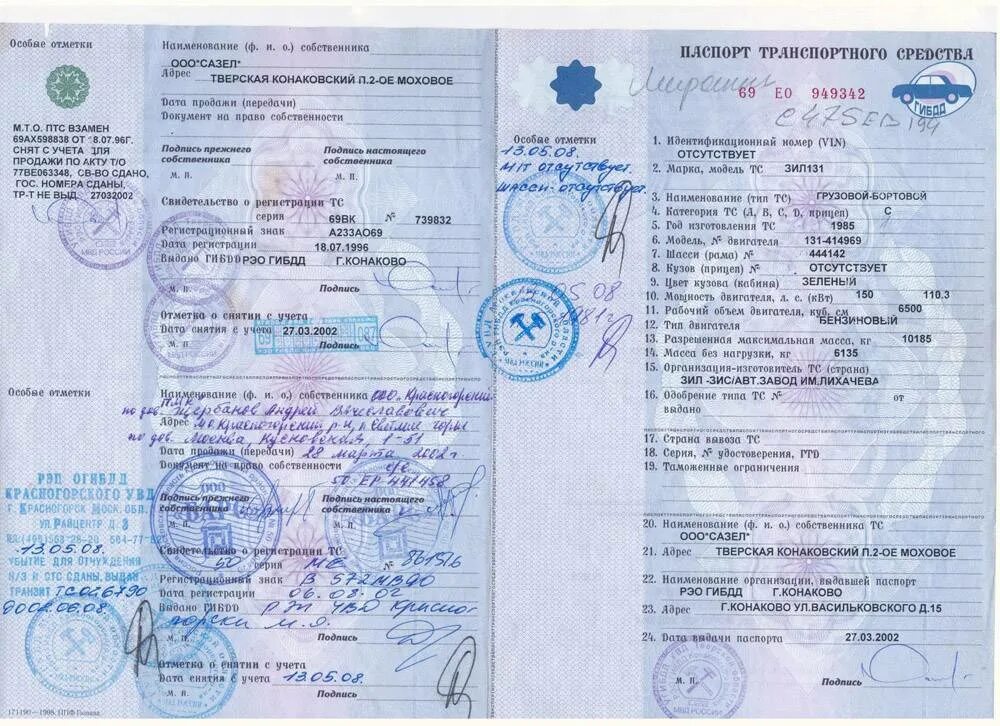 Особые отметки
М.Т.О. ПТС ВЗАМЕН
69АХ598838 ОТ 18.07.96Г.
СНЯТ С УЧЕТА ДЛЯ
ПРОДАЖИ ПО АКТУ Т/О
77ВЕ063348, СВ-ВО СДАНО,
ГОС. НОМЕРА СДАНЫ,
ТР-Т НЕ ВЫД. 27032002
Наименование (ф. и. о.) собственника
ООО"САЗЕЛ"
Адрес ТВЕРСКАЯ КОНАКОВСКИЙ П.2-ОЕ МОХОВОЕ
Дата продажи (передачи)
Документ на право собственности
Подпись прежнего собственника
Подпись настоящего собственника
М. П. М. П.
Свидетельство о регистрации ТС
серия 69ВК № 739832
Регистрационный знак А233АО69
Дата регистрации 18.07.1996
Выдано ГИБДД РЭО ГИБДД Г.КОНАКОВО
М. П. Подпись
Отметка о снятии с учета
Дата снятия с учета 27.03.2002
М. П. Подпись
Особые отметки
РЭП ОГИБДД
КРАСНОГОРСКОГО УВД
Г. КРАСНОГОРСК МОСК. ОБЛ.
УЛ. РАЙЦЕНТР Д. 3
13.05.08.
УБЫТИЕ ДЛЯ ОТЧУЖДЕНИЯ
Н/З И СТС СДАНЫ, ВЫДАН
ТРАНЗИТ ТС0146790
До 02.06.08.
171190—1998. ППФ Гознака.
Наименование (ф. и. о.) собственника ООО "Красногорский
ПМК"
по дов. Щербанов Андрей Вячеславович
Адрес МО, Красногорский р-н, п. Светлые горы
по дов. Москва, Кусковская, 1-51
Дата продажи (передачи) 28 марта 2002г.
Документ на право собственности
50 ЕР 441458
Подпись прежнего собственника
Подпись настоящего собственника
М. П. М. П.
Свидетельство о регистрации ТС
50 серия МЕ № 861516
Регистрационный знак В 572МВ90
Дата регистрации 06.08.02
Выдано ГИБДД РЭП УВД Красно-
горска М.О.
М. П. Подпись
Отметка о снятии с учета
Дата снятия с учета 13.05.08.
М. П. Подпись
Особые отметки
13.05.08.
МП отсутствует.
Шасси - отсутствует.
05 08
ПАСПОРТ ТРАНСПОРТНОГО СРЕДСТВА
69 ЕО 949342
С475ЕВ 199
ГИБДД
1. Идентификационный номер (VIN)
ОТСУТСТВУЕТ
2. Марка, модель ТС ЗИЛ131
3. Наименование (тип ТС) ГРУЗОВОЙ-БОРТОВОЙ
4. Категория ТС (А, В, С, D, прицеп) С
5. Год изготовления ТС 1985
6. Модель, № двигателя 131-414969
7. Шасси (рама) № 444142
8. Кузов (прицеп) № ОТСУТСТВУЕТ
9. Цвет кузова (кабины) ЗЕЛЕНЫЙ
10. Мощность двигателя, л. с. (кВт) 150 110.3
11. Рабочий объем двигателя, куб. см 6500
12. Тип двигателя БЕНЗИНОВЫЙ
13. Разрешенная максимальная масса, кг 10185
14. Масса без нагрузки, кг 6135
15. Организация-изготовитель ТС (страна)
ЗИЛ -ЗИС/АВТ.ЗАВОД ИМ.ЛИХАЧЕВА
16. Одобрение типа ТС № от
выдано
17. Страна вывоза ТС
18. Серия, № удостоверения, ГТD
19. Таможенные ограничения
20. Наименование (ф. и. о.) собственника ТС
ООО"САЗЕЛ"
21. Адрес ТВЕРСКАЯ КОНАКОВСКИЙ П.2-ОЕ МОХОВОЕ
22. Наименование организации, выдавшей паспорт
РЭО ГИБДД Г.КОНАКОВО
23. Адрес Г.КОНАКОВО УЛ.ВАСИЛЬКОВСКОГО Д.15
24. Дата выдачи паспорта 27.03.2002
М. П. Подпись